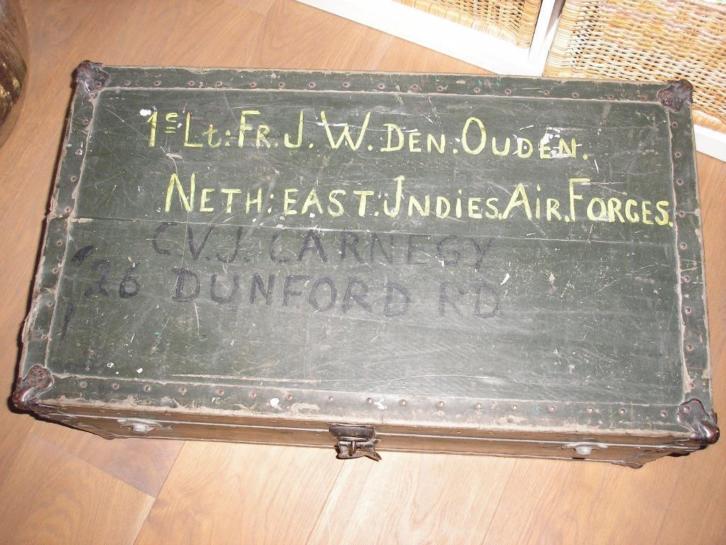 1e Lt: Fr. J. W. DEN: OUDEN.
NETH: EAST. JNDIES. AIR. FORCES.
C.V.J. CARNEGY
26 DUNFORD RD